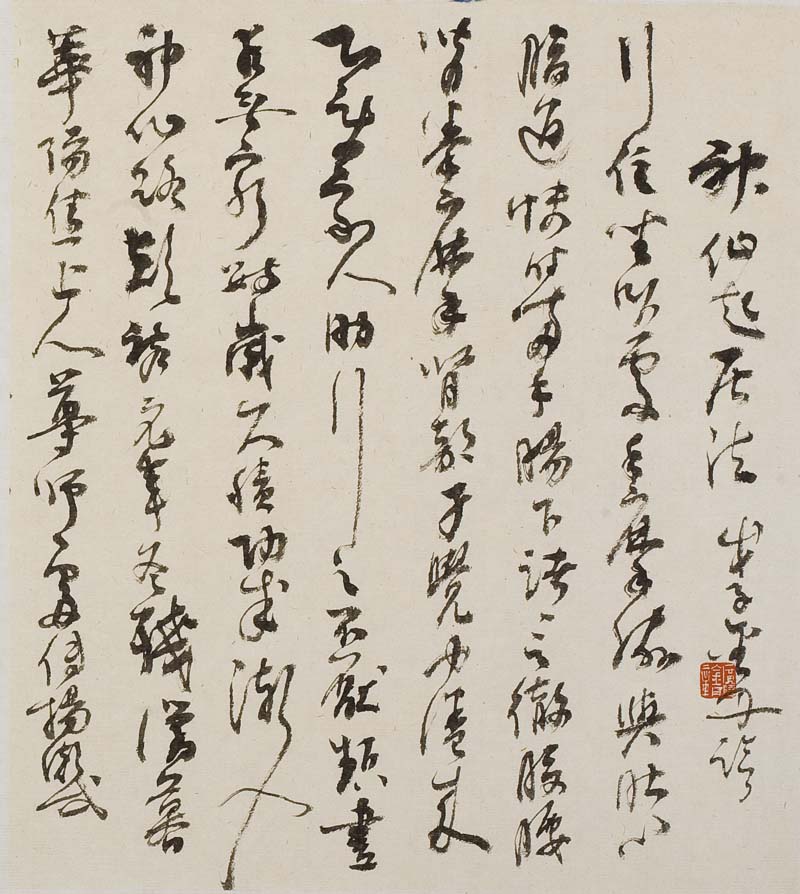 神仙起居法 戊子
行住坐臥處手摩脅與肚心
腹通快時兩手腸下踞之徹膀腰
背拳摩腎部才覺力倦來
即使家人助行之不厭頻晝
夜無窮數歲久積功成漸入
神仙路乾祐元年冬殘臘暮
華陽焦上人尊師處傳楊凝式